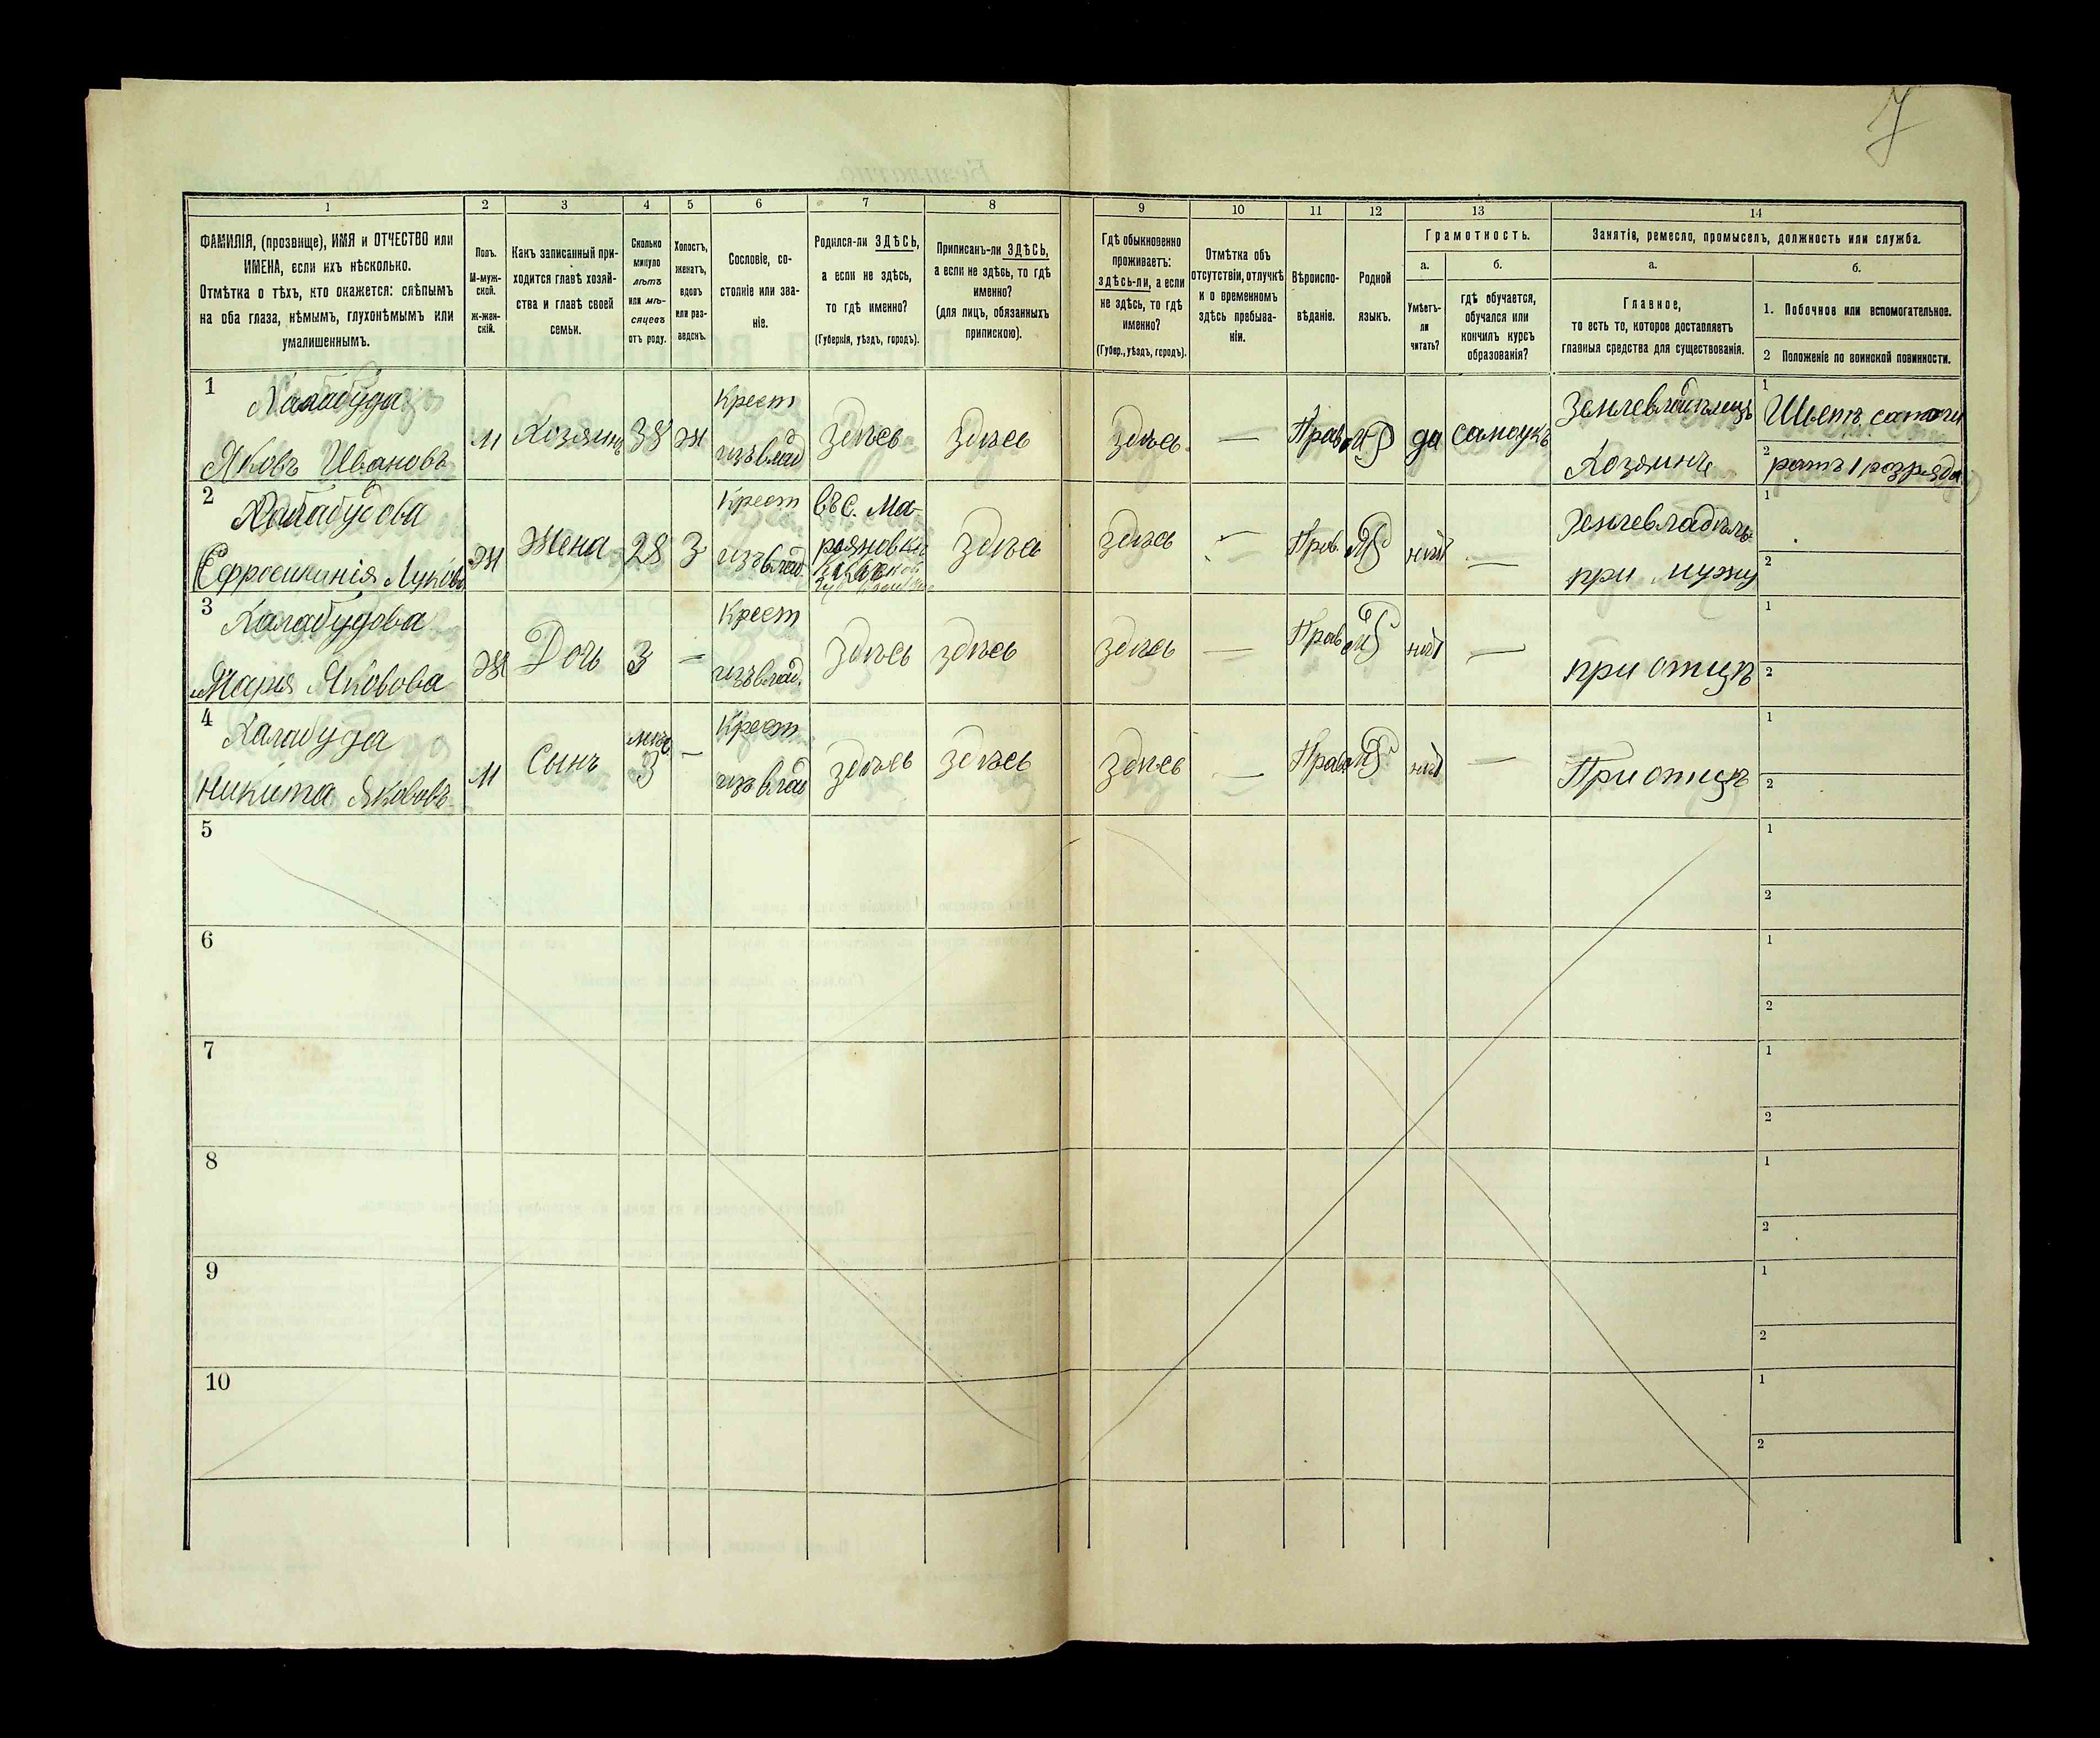 7
1 2 3 4 5 6 7 8 9 10 11 12 13 14
ФАМИЛІЯ, (прозвище), ИМЯ и ОТЧЕСТВО или
ИМЕНА, если ихъ нѣсколько.
Отмѣтка о тѣхъ, кто окажется: слѣпымъ
на оба глаза, нѣмымъ, глухонѣмымъ или
умалишеннымъ.
Полъ.
М-муж-
ской.
Ж-жен-
скій.
Какъ записанный при-
ходится главѣ хозяй-
ства и главѣ своей
семьи.
Сколько
минуло
лѣтъ
или мѣ-
сяцевъ
отъ роду.
Холостъ,
женатъ,
вдовъ
или раз-
веденъ.
Сословіе, со-
стояніе или зва-
ніе.
Родился-ли ЗДѢСЬ,
а если не здѣсь,
то гдѣ именно?
(Губернія, уѣздъ, городъ).
Приписанъ-ли ЗДѢСЬ,
а если не здѣсь, то гдѣ
именно?
(для лицъ, обязанныхъ
припискою).
Гдѣ обыкновенно
проживаетъ:
здѣсь-ли, а если
не здѣсь, то гдѣ
именно?
(Губер., уѣздъ, городъ).
Отмѣтка объ
отсутствіи, отлучкѣ
и о временномъ
здѣсь пребыва-
ніи.
Вѣроиспо-
вѣданіе.
Родной
языкъ.
Грамотность.
а.
Умѣетъ-
ли
читать?
б.
гдѣ обучается,
обучался или
кончилъ курсъ
образованія?
Занятія, ремесло, промыселъ, должность или служба.
а.
Главное,
то есть то, которое доставляетъ
главныя средства для существованія.
б.
1. Побочное или вспомогательное.
2 Положеніе по воинской повинности.
1
Халабуда
Яковъ Ивановъ
м
Хозяинъ
38
ж
Крест
изъ влад
Здѣсь
Здѣсь
Здѣсь
—
Прав
да
самоукъ
Землевладѣлецъ
Хозяинъ
1
Шьетъ сапоги
2
ратъ 1 розряда
2
Халабудова
Ефросинія Лукова
ж
Жена
28
З
Крест
изъ влад.
въ с. Ма-
рьяновки
Здѣсь
Здѣсь
—
Прав.
нѣт
—
Землевладѣлъ
при мужу
1
2
3
Халабудова
Марія Яковова
ж
Дочь
3
—
Крест
изъ влад.
Здѣсь
здѣсь
Здѣсь
—
Прав
нѣт
—
при отцѣ
1
2
4
Халабуда
Никита Якововъ
м
Сынъ
3
—
Крест
изъ влад
здѣсь
здѣсь
Здѣсь
—
Прав
нѣт
—
При отцѣ
1
2
5
1
2
6
1
2
7
1
2
8
1
2
9
1
2
10
1
2